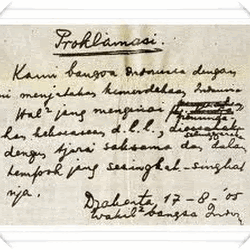 Proklamasi.
Kami bangsa Indonesia dengan
ni menjatakan kemerdekaan
Hal² jang mengenai
kekoeasaan d.l.l.,
dengan tjara saksama dan dalam
tempoh jang sesingkat-singkat
nja.
Djakarta, 17-8-'05
Wakil² bangsa Indon